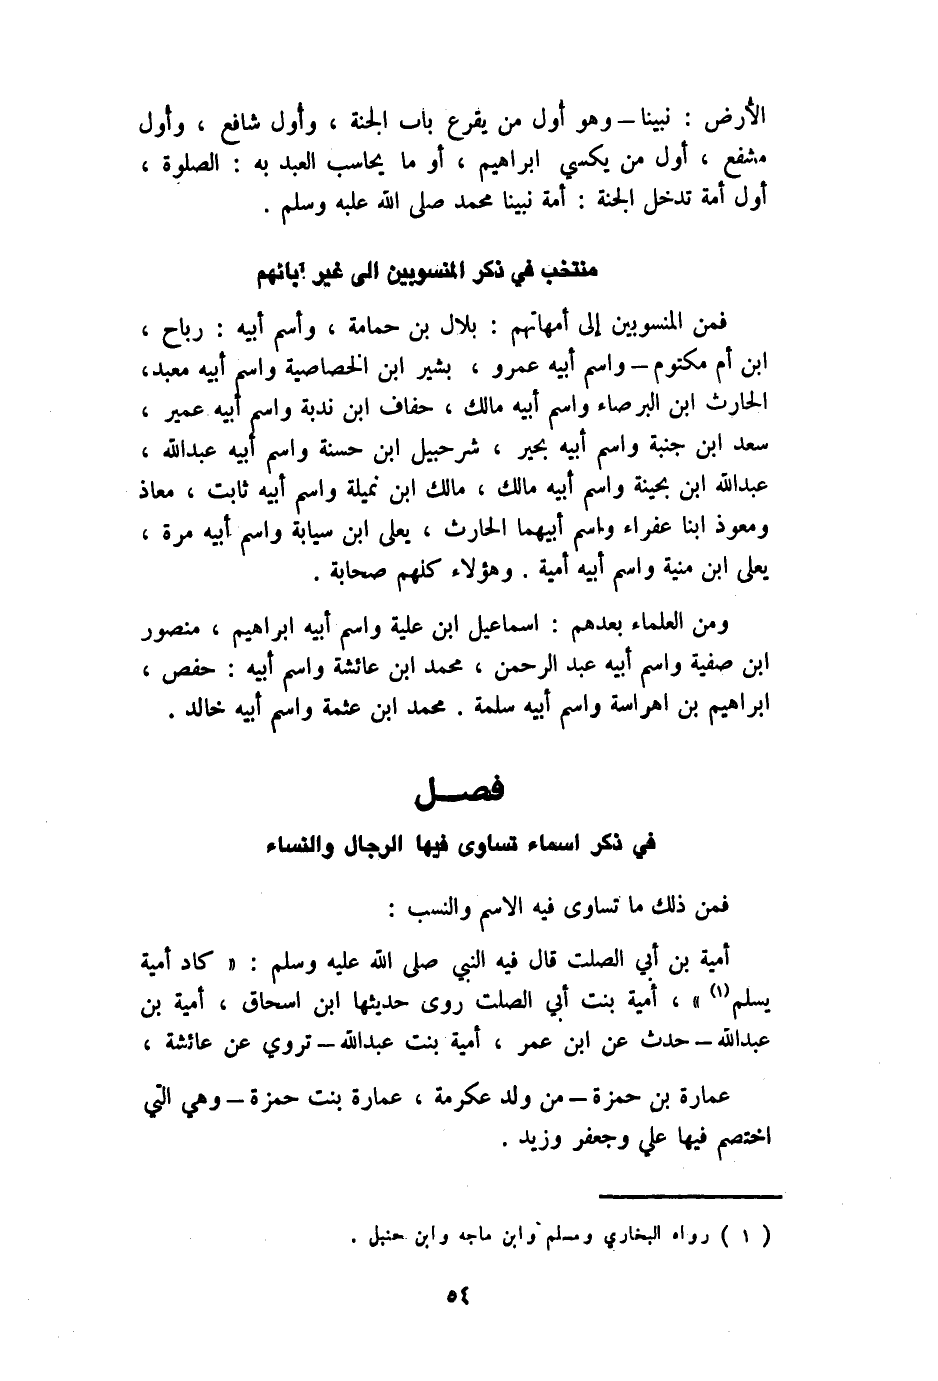 الأرض : نبينا – وهو أول من يقرع باب الجنة ، وأول شافع ، وأول
مشفع ، أول من يكسي ابراهيم ، أو ما يحاسب العبد به : الصلوة ،
أول أمة تدخل الجنة : أمة نبينا محمد صلى الله علبه وسلم .
منتخب في ذكر المنسوبين الى غير آبائهم
فمن المنسوبين إلى أمهاتهم : بلال بن حمامة ، وأسم أبيه : رباح ،
ابن أم مكتوم – واسم أبيه عمرو ، بشير ابن الخصاصية واسم أبيه معبد،
الحارث ابن البرصاء واسم أبيه مالك ، حفاف ابن ندبة واسم أبيه عمير ،
سعد ابن جنبة واسم أبيه بحير ، شرحبيل ابن حسنة واسم أبيه عبدالله ،
عبدالله ابن بحينة واسم أبيه مالك ، مالك ابن نميلة واسم أبيه ثابت ، معاذ
ومعوذ ابنا عفراء واسم أبيهما الحارث ، يعلى ابن سيابة واسم أبيه مرة ،
يعلى ابن منية واسم أبيه أمية . وهؤلاء كلهم صحابة .
ومن العلماء بعدهم : اسماعيل ابن علية واسم أبيه ابراهيم ، منصور
ابن صفية واسم أبيه عبد الرحمن ، محمد ابن عائشة واسم أبيه : حفص ،
ابراهيم بن اهراسة واسم أبيه سلمة . محمد ابن عثمة واسم أبيه خالد .
فصـــل
في ذكر اسماء تساوى فيها الرجال والنساء
فمن ذلك ما تساوى فيه الاسم والنسب :
أمية بن أبي الصلت قال فيه النبي صلى الله عليه وسلم : « كاد أمية
يسلم(١) » ، أمية بنت أبي الصلت روى حديثها ابن اسحاق ، أمية بن
عبدالله – حدث عن ابن عمر ، أمية بنت عبدالله – تروي عن عائشة ،
عمارة بن حمزة – من ولد عكرمة ، عمارة بنت حمزة – وهي التي
اختصم فيها علي وجعفر وزيد .
( ١ ) رواه البخاري ومسلم وابن ماجه وابن حنبل .
٥٤